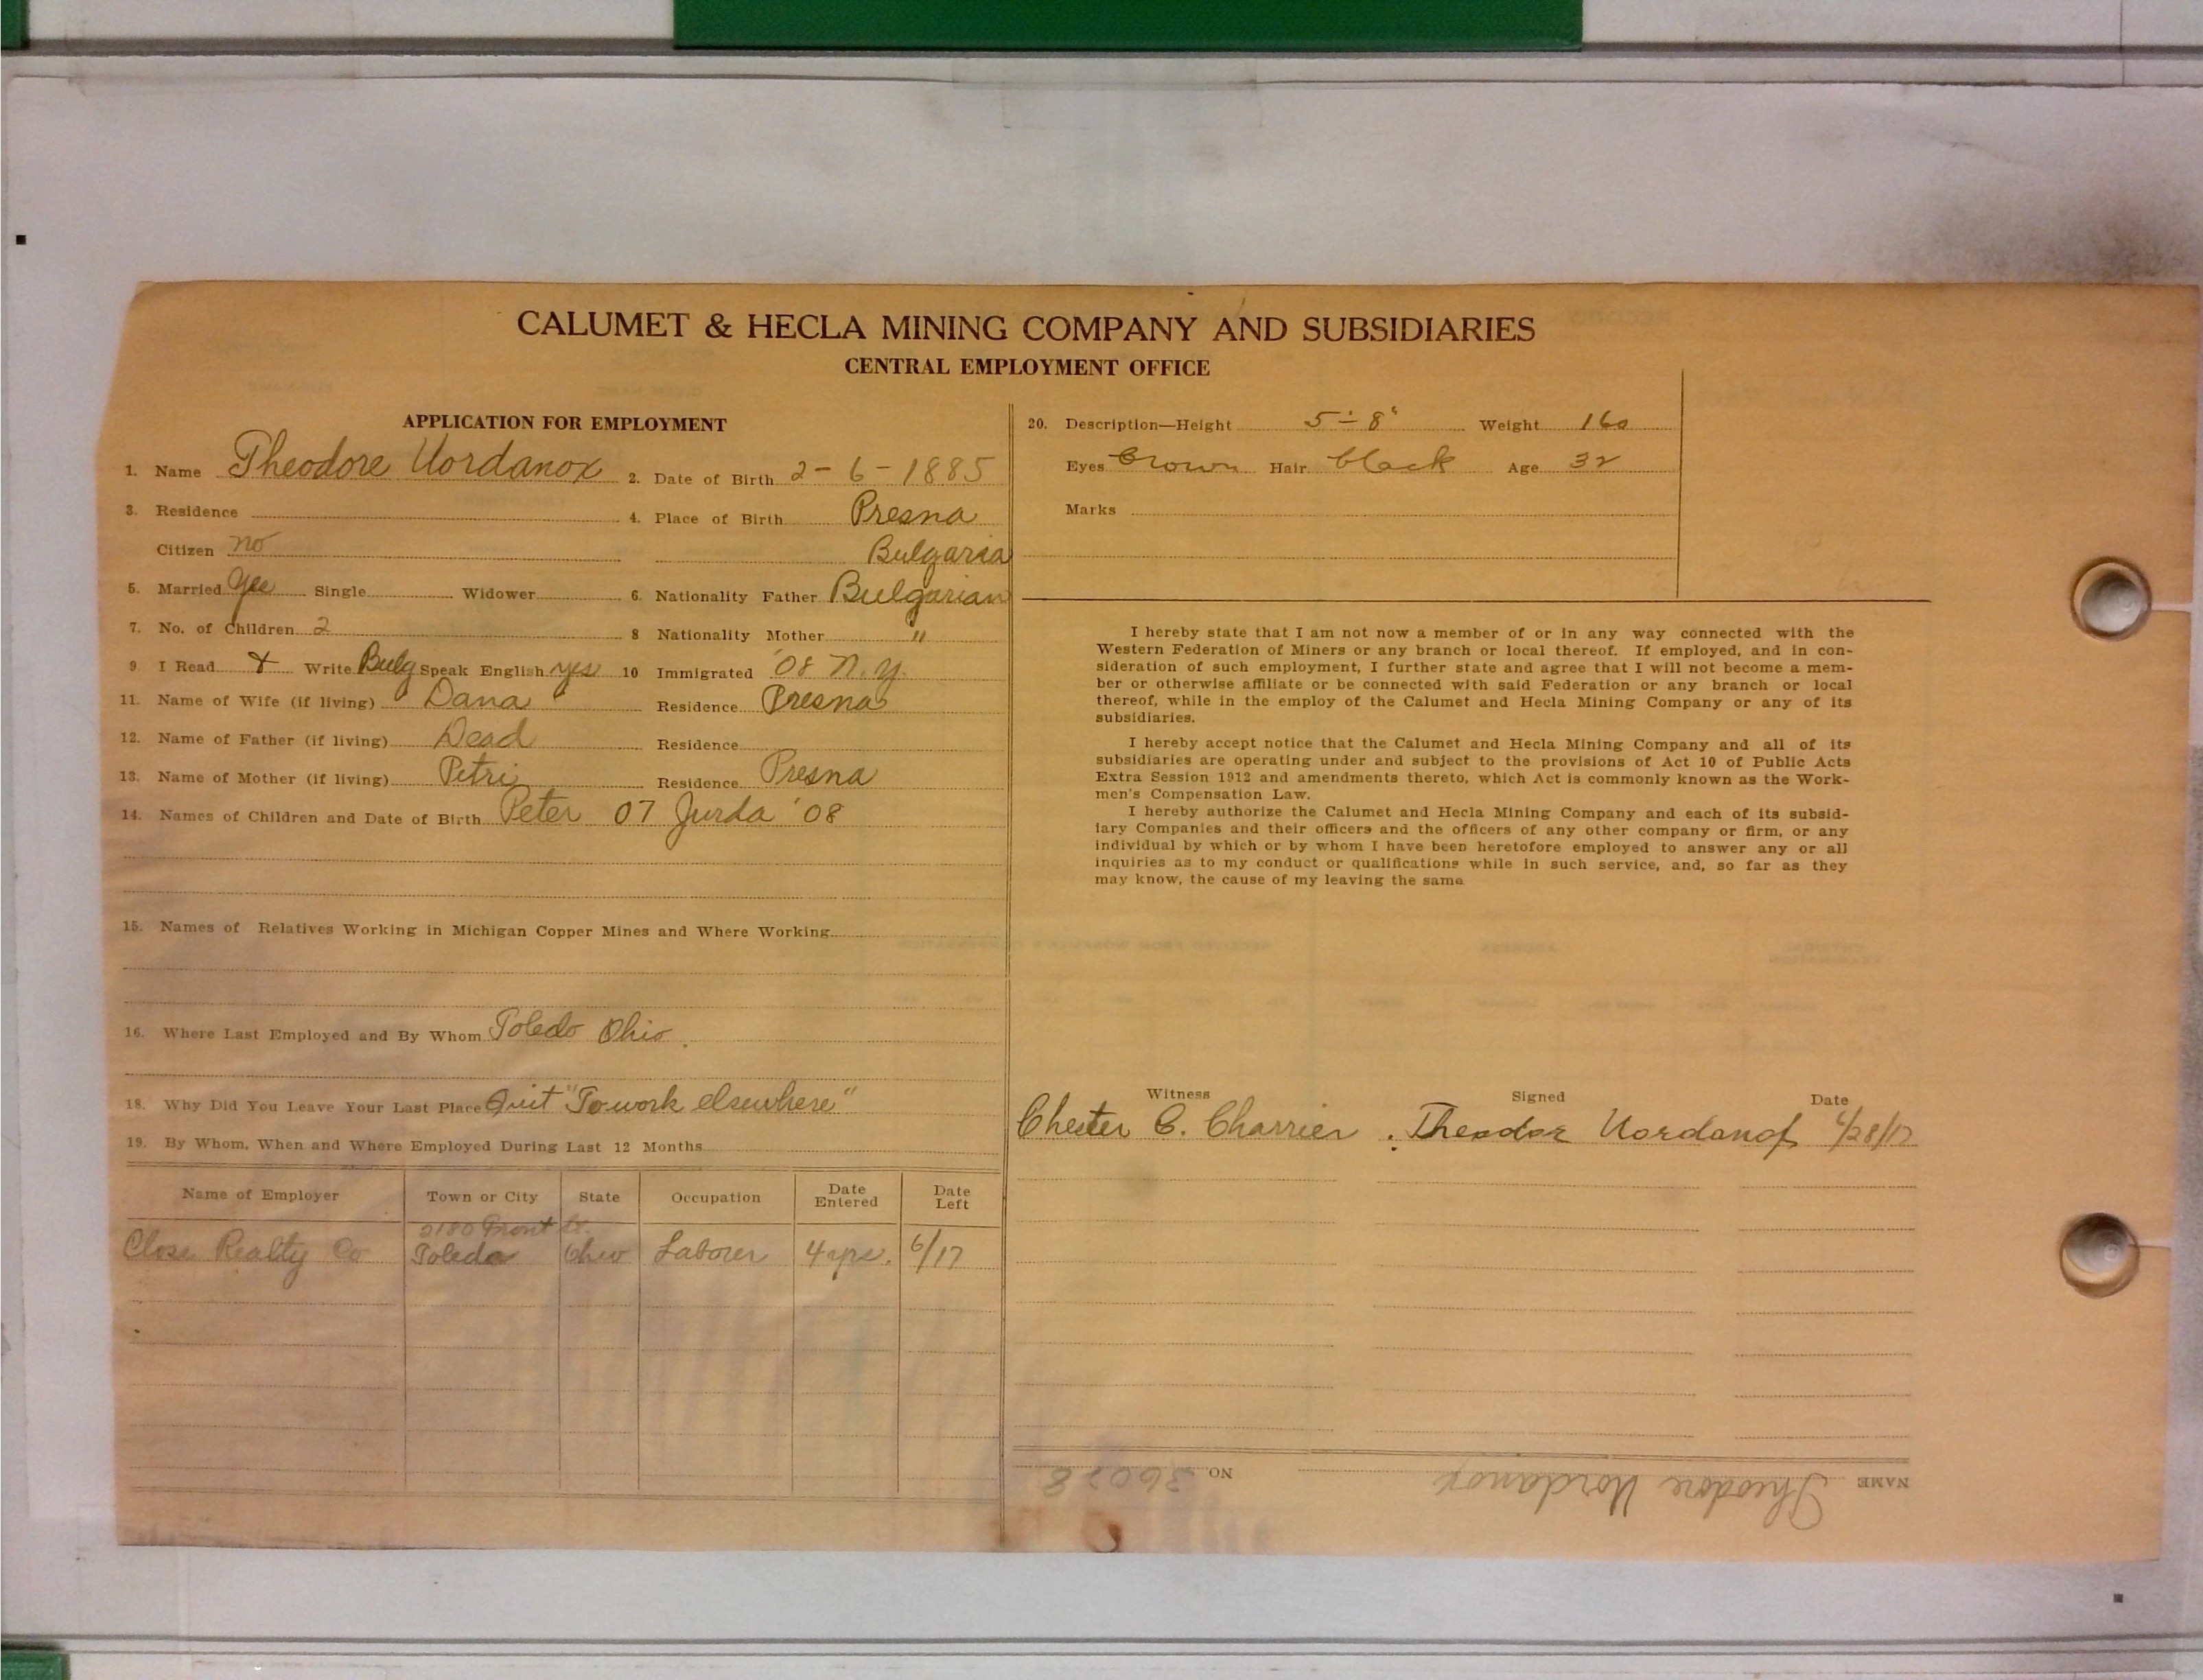 CALUMET & HECLA MINING COMPANY AND SUBSIDIARIES
CENTRAL EMPLOYMENT OFFICE
APPLICATION FOR EMPLOYMENT
1. Name Theodore Uordanox 2. Date of Birth 2-6-1885
3. Residence 4. Place of Birth Presna
Citizen no Bulgaria
5. Married yes Single Widower 6. Nationality Father Bulgarian
7. No. of Children 2 8 Nationality Mother "
9. I Read & Write Bulg Speak English yes 10 Immigrated '08 N.Y.
11. Name of Wife (if living) Dana Residence Presna
12. Name of Father (if living) Dead Residence
13. Name of Mother (if living) Petri Residence Presna
14. Names of Children and Date of Birth Peter 07 Jurda '08
15. Names of Relatives Working in Michigan Copper Mines and Where Working
16. Where Last Employed and By Whom Toledo Ohio.
18. Why Did You Leave Your Last Place Quit "To work elsewhere"
19. By Whom, When and Where Employed During Last 12 Months
Name of Employer Town or City State Occupation Date Entered Date Left
2180 Front St.
Close Realty Co Toledo Ohio Laborer 4 yrs. 6/17
20. Description—Height 5-8" Weight 160
Eyes Brown Hair black Age 32
Marks
I hereby state that I am not now a member of or in any way connected with the
Western Federation of Miners or any branch or local thereof. If employed, and in con-
sideration of such employment, I further state and agree that I will not become a mem-
ber or otherwise affiliate or be connected with said Federation or any branch or local
thereof, while in the employ of the Calumet and Hecla Mining Company or any of its
subsidiaries.
I hereby accept notice that the Calumet and Hecla Mining Company and all of its
subsidiaries are operating under and subject to the provisions of Act 10 of Public Acts
Extra Session 1912 and amendments thereto, which Act is commonly known as the Work-
men's Compensation Law.
I hereby authorize the Calumet and Hecla Mining Company and each of its subsid-
iary Companies and their officers and the officers of any other company or firm, or any
individual by which or by whom I have been heretofore employed to answer any or all
inquiries as to my conduct or qualifications while in such service, and, so far as they
may know, the cause of my leaving the same
Witness Signed Date
Chester C. Charrier Theodor Uordanof 6/28/17
NAME Theodore Uordanox NO 36028